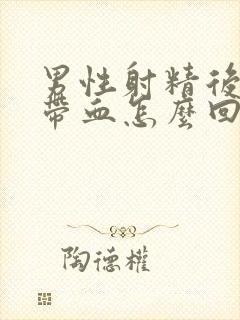 男性射精後
帶血怎麼回
陶德權